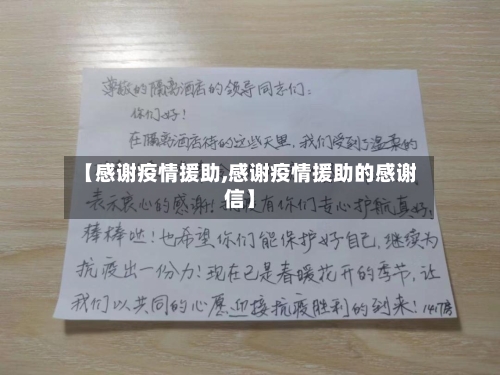 尊敬的隔离酒店的领导同志们:
你们好!
在隔离酒店待的这些天里,我们受到了温柔的
【感谢疫情援助,感谢疫情援助的感谢
信】
表示衷心的感谢!有你们专心护航真好,
棒棒哒!也希望你们能保护好自己,继续为
抗疫出一份力!现在已是春暖花开的季节,让
我们以共同的心愿迎接抗疫胜利的到来!1417房